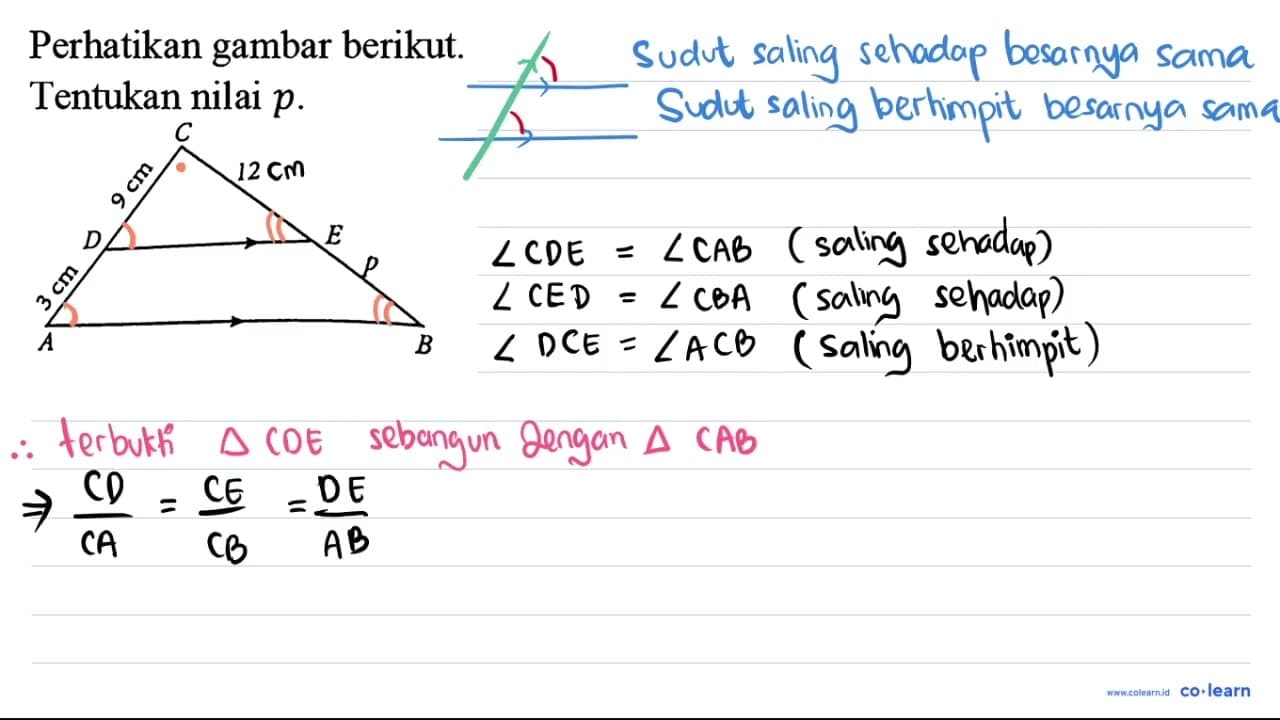 Perhatikan gambar berikut.
Tentukan nilai p.
Sudut saling sehadap besarnya sama
Sudut saling berhimpit besarnya sama
C
9 cm
12 cm
D
E
3 cm
p
A
B
∠CDE = ∠CAB (saling sehadap)
∠CED = ∠CBA (saling sehadap)
∠DCE = ∠ACB (saling berhimpit)
∴ terbukti △ CDE sebangun dengan △ CAB
⇒ CD/CA = CE/CB = DE/AB
www.colearn.id co·learn